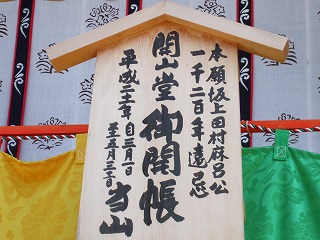 本願坂上田村麻呂公
一千二百年遠忌
開山堂 御開帳
平成二十二年 自三月一日
至五月三十一日
当山